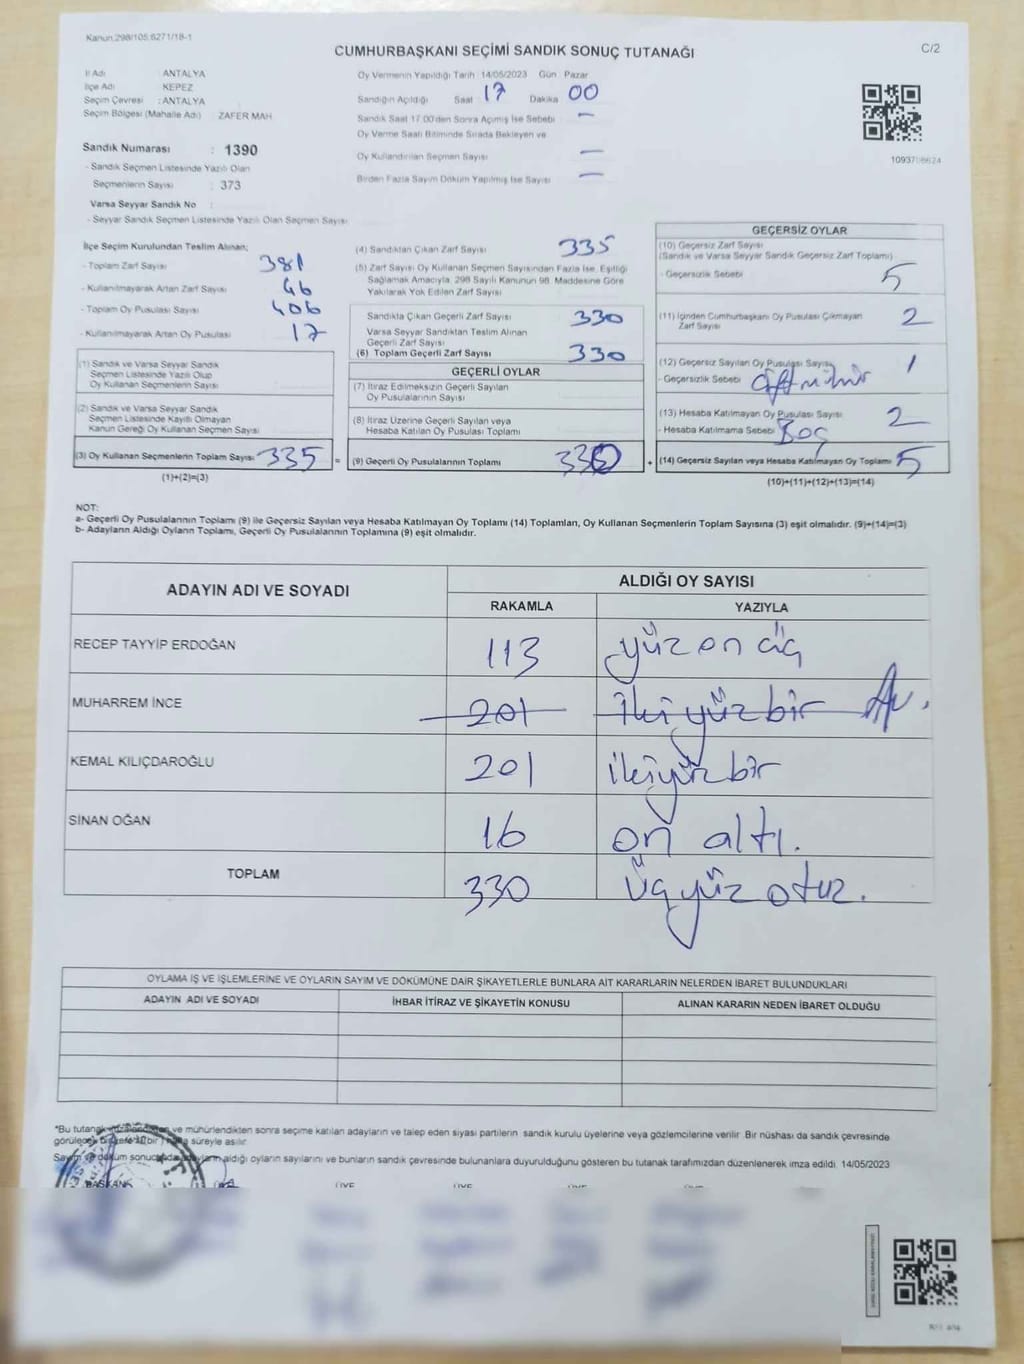 Kanun:298/105;6271/18-1
C/2
CUMHURBAŞKANI SEÇİMİ SANDIK SONUÇ TUTANAĞI
İl Adı : ANTALYA
İlçe Adı : KEPEZ
Seçim Çevresi : ANTALYA
Seçim Bölgesi (Mahalle Adı) : ZAFER MAH
Sandık Numarası : 1390
- Sandık Seçmen Listesinde Yazılı Olan
Seçmenlerin Sayısı : 373
Varsa Seyyar Sandık No :
- Seyyar Sandık Seçmen Listesinde Yazılı Olan Seçmen Sayısı
Oy Vermenin Yapıldığı Tarih 14/05/2023 Gün Pazar
Sandığın Açıldığı Saat 17 Dakika 00
Sandık Saat 17.00'den Sonra Açımış İse Sebebi —
Oy Verme Saati Bitiminde Sırada Bekleyen ve
Oy Kullandırılan Seçmen Sayısı —
Birden Fazla Sayım Döküm Yapılmış İse Sayısı —
İlçe Seçim Kurulundan Teslim Alınan;
- Toplam Zarf Sayısı 381
- Kullanılmayarak Artan Zarf Sayısı 46
- Toplam Oy Pusulası Sayısı 406
- Kullanılmayarak Artan Oy Pusulası 17
(1) Sandık ve Varsa Seyyar Sandık
Seçmen Listesinde Yazılı Olup
Oy Kullanan Seçmenlerin Sayısı
(2) Sandık ve Varsa Seyyar Sandık
Seçmen Listesinde Kayıtlı Olmayan
Kanun Gereği Oy Kullanan Seçmen Sayısı
(3) Oy Kullanan Seçmenlerin Toplam Sayısı 335
(1)+(2)=(3)
(4) Sandıktan Çıkan Zarf Sayısı 335
(5) Zarf Sayısı Oy Kullanan Seçmen Sayısından Fazla İse, Eşitliği
Sağlamak Amacıyla, 298 Sayılı Kanunun 98. Maddesine Göre
Yakılarak Yok Edilen Zarf Sayısı
Sandıkta Çıkan Geçerli Zarf Sayısı 330
Varsa Seyyar Sandıktan Teslim Alınan
Geçerli Zarf Sayısı
(6) Toplam Geçerli Zarf Sayısı 330
GEÇERLİ OYLAR
(7) İtiraz Edilmeksizin Geçerli Sayılan
Oy Pusulalarının Sayısı
(8) İtiraz Üzerine Geçerli Sayılan veya
Hesaba Katılan Oy Pusulası Toplamı
= (9) Geçerli Oy Pusulalarının Toplamı 330
GEÇERSİZ OYLAR
(10) Geçersiz Zarf Sayısı
(Sandık ve Varsa Seyyar Sandık Geçersiz Zarf Toplamı)
- Geçersizlik Sebebi 5
(11) İçinden Cumhurbaşkanı Oy Pusulası Çıkmayan
Zarf Sayısı 2
(12) Geçersiz Sayılan Oy Pusulası Sayısı 1
- Geçersizlik Sebebi Çift mühür
(13) Hesaba Katılmayan Oy Pusulası Sayısı 2
- Hesaba Katılmama Sebebi Boş
+ (14) Geçersiz Sayılan veya Hesaba Katılmayan Oy Toplamı 5
(10)+(11)+(12)+(13)=(14)
NOT:
a- Geçerli Oy Pusulalarının Toplamı (9) ile Geçersiz Sayılan veya Hesaba Katılmayan Oy Toplamı (14) Toplamları, Oy Kullanan Seçmenlerin Toplam Sayısına (3) eşit olmalıdır. (9)+(14)=(3)
b- Adayların Aldığı Oyların Toplamı, Geçerli Oy Pusulalarının Toplamına (9) eşit olmalıdır.
ADAYIN ADI VE SOYADI
ALDIĞI OY SAYISI
RAKAMLA YAZIYLA
RECEP TAYYİP ERDOĞAN 113 yüz on üç
MUHARREM İNCE 201 iki yüz bir
KEMAL KILIÇDAROĞLU 201 ikiyüz bir
SİNAN OĞAN 16 on altı.
TOPLAM 330 üçyüz otuz.
OYLAMA İŞ VE İŞLEMLERİNE VE OYLARIN SAYIM VE DÖKÜMÜNE DAİR ŞİKAYETLERLE BUNLARA AİT KARARLARIN NELERDEN İBARET BULUNDUKLARI
ADAYIN ADI VE SOYADI İHBAR İTİRAZ VE ŞİKAYETİN KONUSU ALINAN KARARIN NEDEN İBARET OLDUĞU
*Bu tutanak ve mühürlendikten sonra seçime katılan adayların ve talep eden siyasi partilerin sandık kurulu üyelerine veya gözlemcilerine verilir. Bir nüshası da sandık çevresinde
görülecek bir hafta süreyle asılır.
Sayım ve döküm sonucunda adayların aldığı oyların sayılarını ve bunların sandık çevresinde bulunanlara duyurulduğunu gösteren bu tutanak tarafımızdan düzenlenerek imza edildi. 14/05/2023
BAŞKAN ÜYE ÜYE ÜYE ÜYE